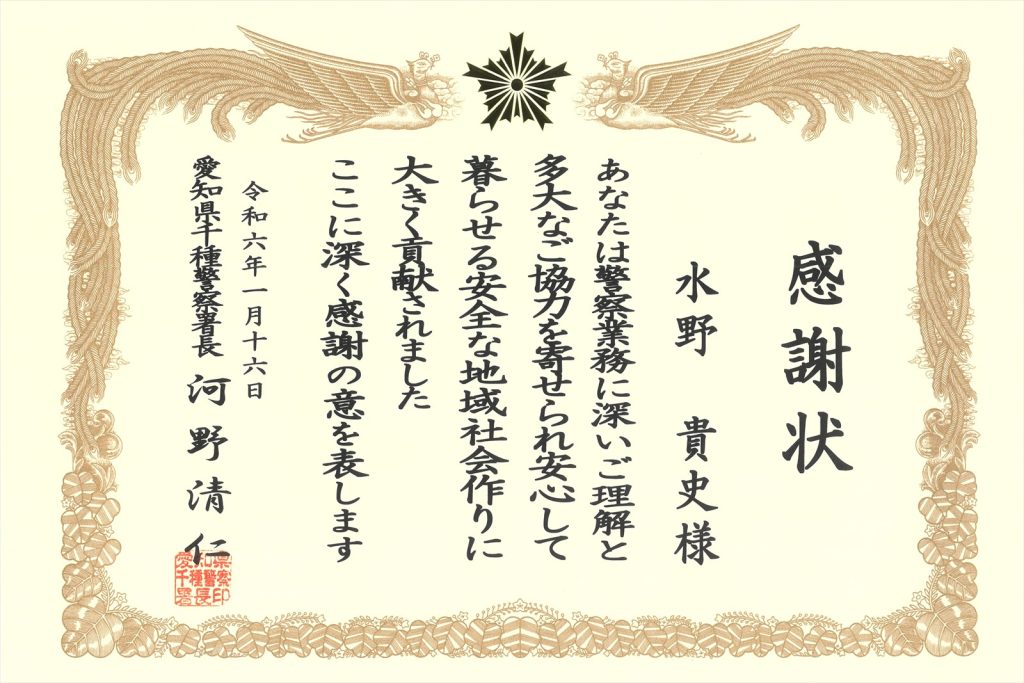 感謝状
水野 貴史様
あなたは警察業務に深いご理解と
多大なご協力を寄せられ安心して
暮らせる安全な地域社会作りに
大きく貢献されました
ここに深く感謝の意を表します
令和六年一月十六日
愛知県千種警察署長 河野清仁
愛知県千種警察署長印